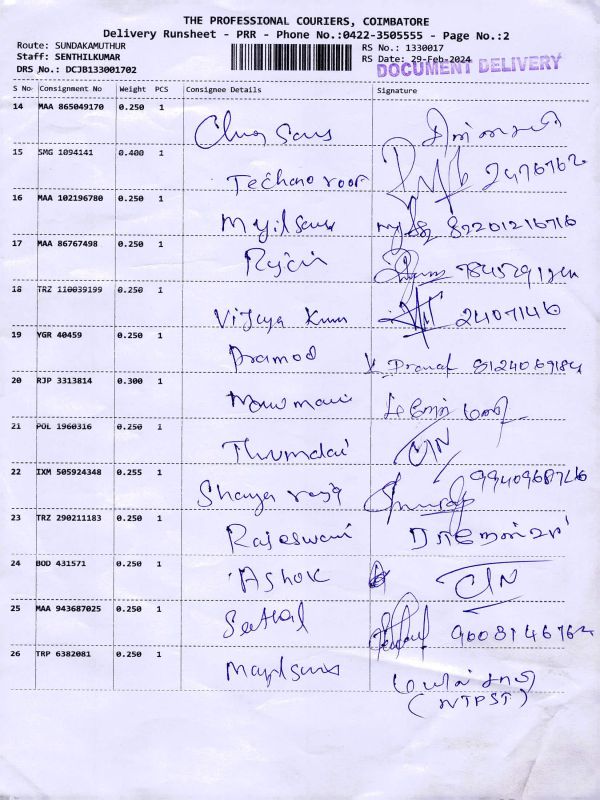 THE PROFESSIONAL COURIERS, COIMBATORE
Delivery Runsheet - PRR - Phone No.:0422-3505555 - Page No.:2
Route: SUNDAKAMUTHUR
Staff: SENTHILKUMAR
DRS No.: DCJB133001702
RS No.: 1330017
RS Date: 29-Feb-2024
DOCUMENT DELIVERY
S No Consignment No Weight PCS Consignee Details Signature
14 MAA 865049170 0.250 1
15 SMG 1094141 0.400 1 Techno roof 2476762
16 MAA 102196780 0.250 1 Mayil Sans 82201216716
17 MAA 86767498 0.250 1
18 TRZ 110039199 0.250 1 Vijaya Kum 2407146
19 YGR 40459 0.250 1 Pramod V. Pranav 8124069184
20 RJP 3313814 0.300 1
21 POL 1960316 0.250 1 C/N
22 IXM 505924348 0.255 1 9940968726
23 TRZ 290211183 0.250 1 Rajeswari
24 BOD 431571 0.250 1 Ashok C/N
25 MAA 943687025 0.250 1 Senthil 9608146762
26 TRP 6382081 0.250 1
(NTPST)